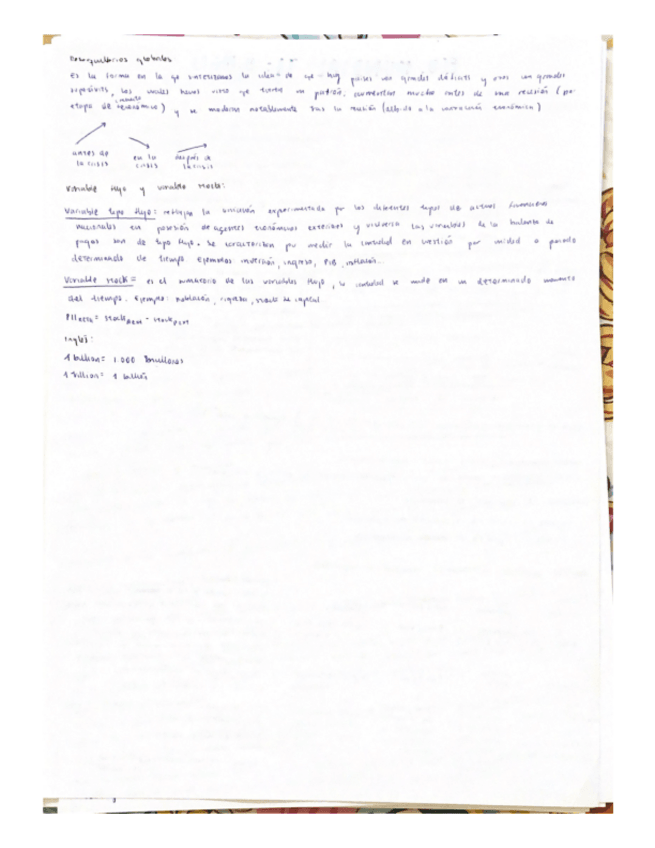 Desequilibrios globales
es la forma en la qe sintetizamos la idea de qe hay países con grandes déficits y otros con grandes
superávits, los cuales hemos visto qe tienen un patrón, aumentan mucho antes de una recesión (por
etapa de económico) y se moderan notablemente tras la recesión (debido a la económica)
antes de la crisis
en la crisis
después de la crisis
Variable flujo y variable stock:
Variable tipo flujo: refleja la variación experimentada por los diferentes tipos de activos financieros
nacionales en posesión de agentes económicos exteriores y viceversa. Las variables de la balanza de
pagos son de tipo flujo. Se caracterizan por medir la cantidad en cuestión por unidad o periodo
determinado de tiempo. Ejemplos inversión, ingreso, PIB, inflación...
Variable stock = es el sumatorio de las variables flujo, la cantidad se mide en un determinado momento
del tiempo. Ejemplo: población, riqueza, stock de capital.
Inglés:
1 billion = 1.000 millones
1 trillion = 1 billón